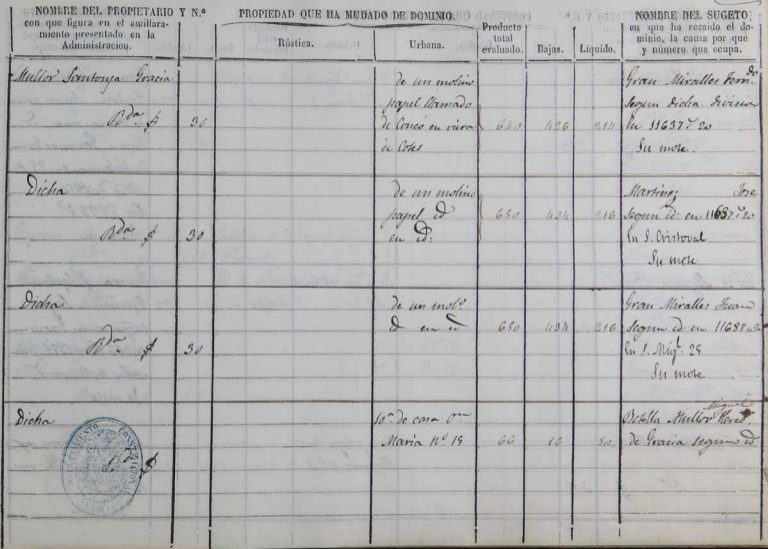 NOMBRE DEL PROPIETARIO Y N.º
con que figura en el amillara-
miento presentado en la
Administracion.
PROPIEDAD QUE HA MUDADO DE DOMINIO.
Rústica.
Urbana.
Producto
total
evaluado.
Bajas.
Líquido.
NOMBRE DEL SUGETO
en que ha recaido el do-
minio, la causa por qué
y número que ocupa.
Mullor Santonja Gracia
Bda. $
30
de un molino
papel llamado
de en
de Cotes
640
426
214
Grau Miralles Fern.do
segun dicha division
en 11637
Su mote.
Dicha
Bda. $
30
de un molino
papel id
en id.
650
434
216
Martinez Jose
segun id. en
en S. Cristoval
Su mote
Dicha
Bda. $
30
de un mol.o
id en id
650
434
216
Grau Miralles Juan
segun id. en
en S. Mig.l 25
Su mote
Dicha
$
10.a de casa
Maria Nº 18
66
16
50
Miguel
Botella Mullor
de Gracia segun id